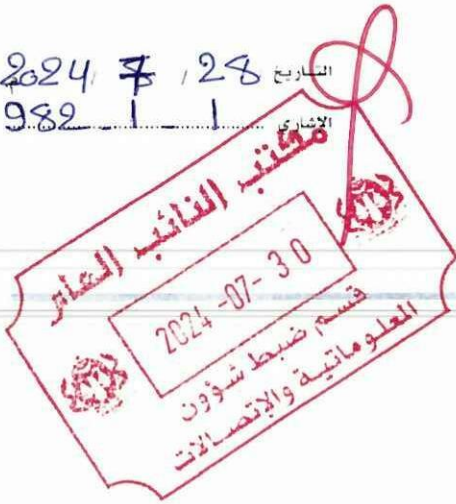 التاريخ 28 / 7 / 2024
الاشاري 1 _ 1 _ 982
مكتب النائب العام
2024 -07- 30
قسم ضبط شؤون
المعلوماتية والإتصالات